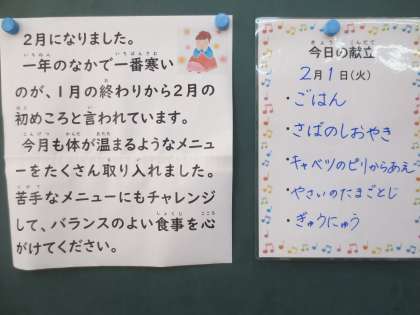 2月になりました。
一年のなかで一番寒い
のが、1月の終わりから2月の
初めころと言われています。
今月も体が温まるようなメニュ
ーをたくさん取り入れました。
苦手なメニューにもチャレンジ
して、バランスのよい食事を心
がけてください。
今日の献立
2月1日(火)
・ごはん
・さばのしおやき
・キャベツのピリからあえ
・やさいのたまごとじ
・ぎゅうにゅう